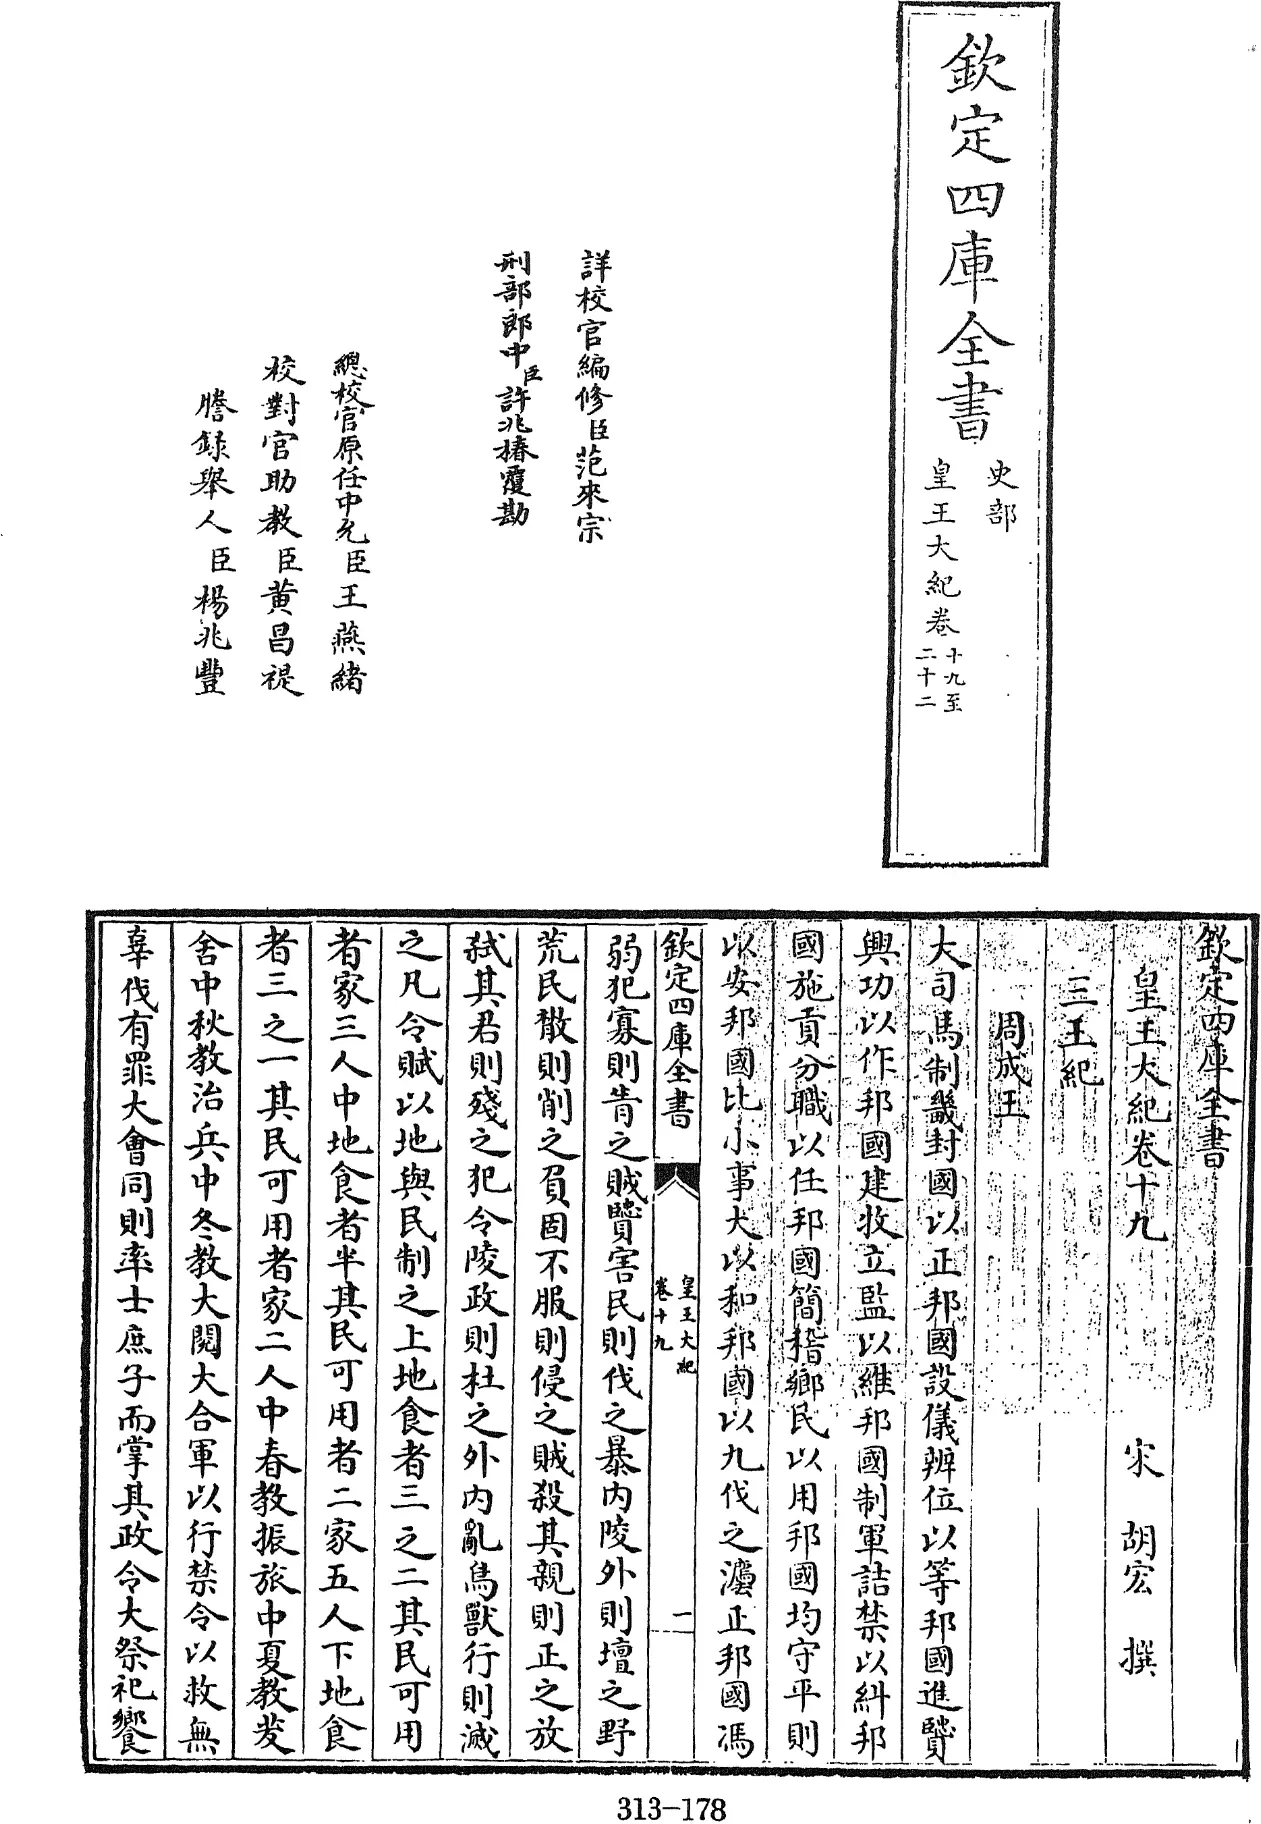 欽定四庫全書
史部
皇王大紀卷十九至二十二
詳校官編修臣范來宗
刑部郎中臣許兆椿覆勘
總校官原任中允臣王燕緒
校對官助教臣黃昌禔
謄錄舉人臣楊兆豐
欽定四庫全書
皇王大紀卷十九 宋 胡宏 撰
三王紀
周成王
大司馬制畿封國以正邦國設儀辨位以等邦國進賢
興功以作邦國建牧立監以維邦國制軍詰禁以糾邦
國施貢分職以任邦國簡稽鄉民以用邦國均守平則
以安邦國比小事大以和邦國以九伐之灋正邦國馮
欽定四庫全書 皇王大紀 卷十九 一
弱犯寡則眚之賊賢害民則伐之暴内陵外則壇之野
荒民散則削之負固不服則侵之賊殺其親則正之放
弑其君則殘之犯令陵政則杜之外内亂鳥獸行則滅
之凡令賦以地與民制之上地食者三之二其民可用
者家三人中地食者半其民可用者二家五人下地食
者三之一其民可用者家二人中春教振旅中夏教茇
舍中秋教治兵中冬教大閲大合軍以行禁令以救無
辜伐有罪大會同則率士庶子而掌其政令大祭祀饗
313-178